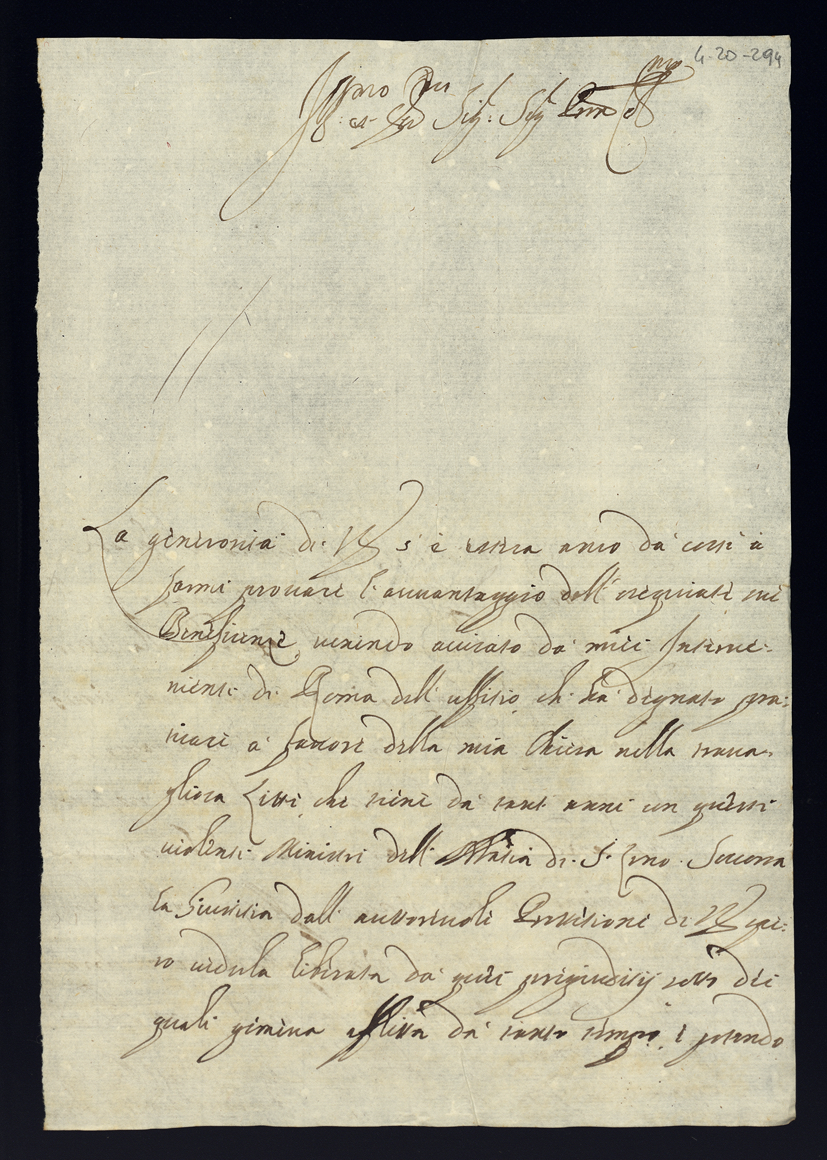 4-20-294
Ill.mo et Sig. Sig. Pron
La generosità di VS s'è estesa anco da costì à
farmi provare l'avvantaggio dell'ossequiate sue
Beneficenze, venendo avisato da miei Interve-
nienti di Roma dell'uffitio, che hà degnato pra-
ticare à favore della mia Chiesa nella trava-
gliosa Lite, che tiene da tant'anni con questi
violenti Ministri dell'Abbatia di S. Zeno. Soccorsa
la Giustitia dall'autorevole Protetione di VS spe-
ro vederla liberata da quei pregiuditij sotto dei
quali gemeva afflitta da tanto tempo, e potendo